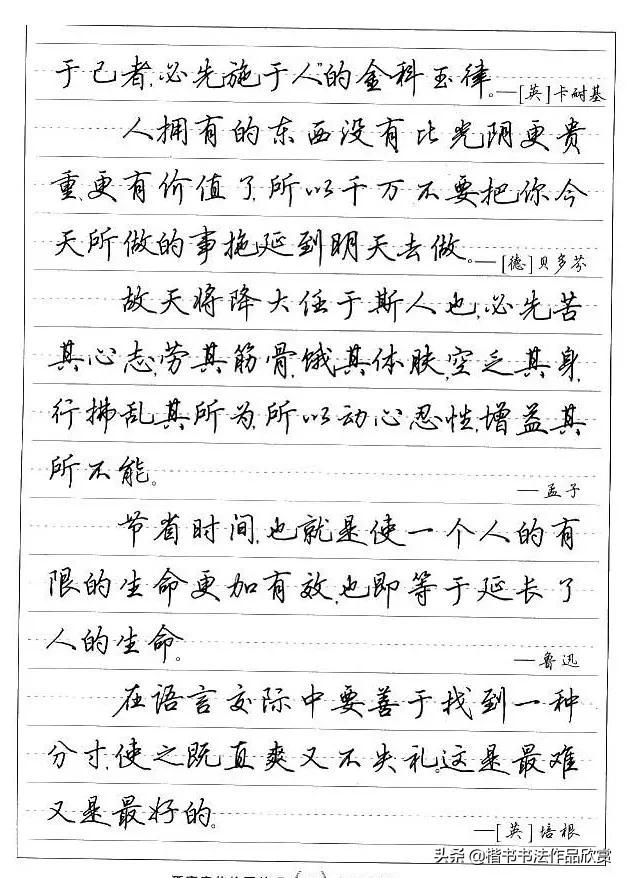 于己者,必先施于人”的金科玉律。—[英]卡耐基
人拥有的东西没有比光阴更贵
重,更有价值了,所以千万不要把你今
天所做的事拖延到明天去做。—[德]贝多芬
故天将降大任于斯人也,必先苦
其心志,劳其筋骨,饿其体肤,空乏其身,
行拂乱其所为,所以动心忍性,增益其
所不能。
—孟子
节省时间,也就是使一个人的有
限的生命更加有效,也即等于延长了
人的生命。
—鲁迅
在语言交际中要善于找到一种
分寸,使之既直爽又不失礼。这是最难
又是最好的。
—[英]培根
头条 @楷书书法作品欣赏